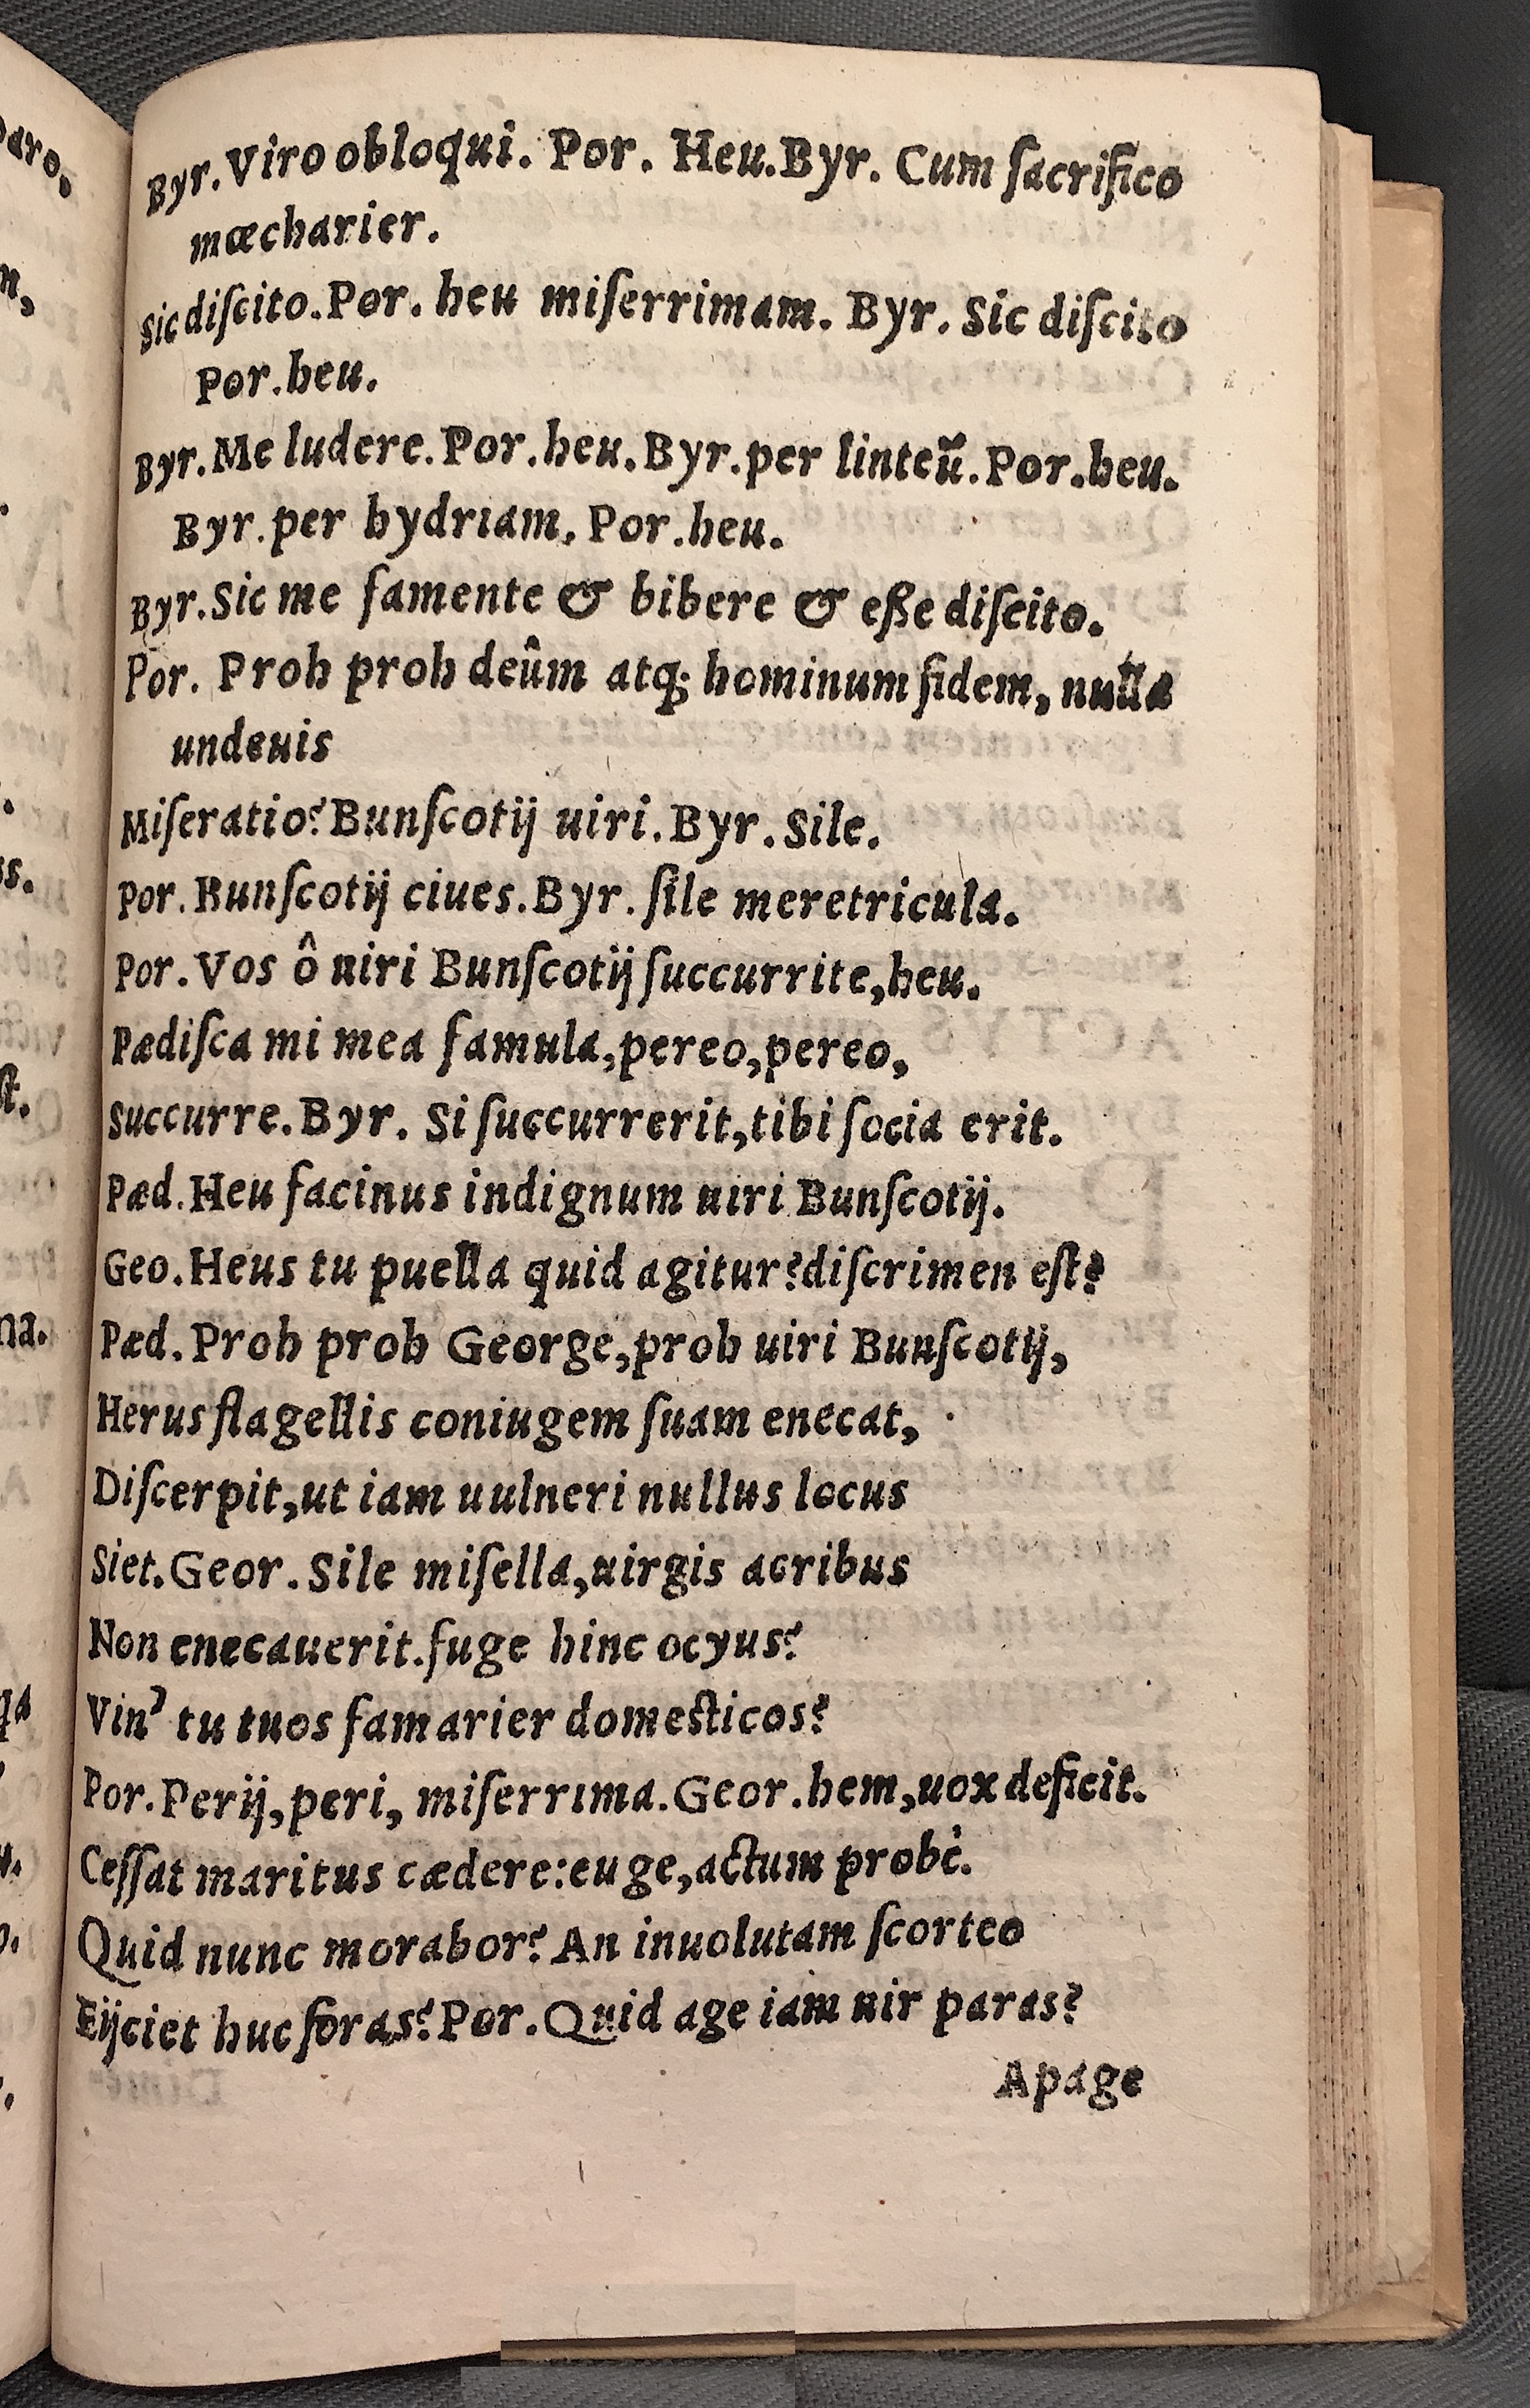 Byr. Viro obloqui. Por. Heu. Byr. Cum ſacrifico
mœcharier.
Sic diſcito. Por. heu miſerrimam. Byr. Sic diſcito
Por. heu.
Byr. Me ludere. Por. heu. Byr. per linteũ. Por. heu.
Byr. per hydriam, Por. heu.
Byr. Sic me famente & bibere & eſse diſcito.
Por. Proh proh deûm atq; hominum fidem, nulla
undeuis
Miſeratio? Bunſcotij uiri. Byr. Sile.
Por. Bunſcotij ciues. Byr. ſile meretricula.
Por. Vos ô uiri Bunſcotij ſuccurrite, heu.
Pædiſca mi mea famula, pereo, pereo,
Succurre. Byr. Si ſuccurrerit, tibi ſocia erit.
Pæd. Heu facinus indignum uiri Bunſcotij.
Geo. Heus tu puella quid agitur? diſcrimen eſt?
Pæd. Proh proh George, proh uiri Bunſcotij,
Herus flagellis coniugem ſuam enecat,
Diſcerpit, ut iam uulneri nullus locus
Siet. Geor. Sile miſella, uirgis acribus
Non enecauerit. fuge hinc ocyus?
Vin' tu tuos famarier domeſticos?
Por. Perij, peri, miſerrima. Geor. hem, uox deficit.
Ceſſat maritus cædere: euge, actum probè.
Quid nunc morabor? An inuolutam ſcorteo
Eijciet huc foras? Por. Quid age iam uir paras?
Apage